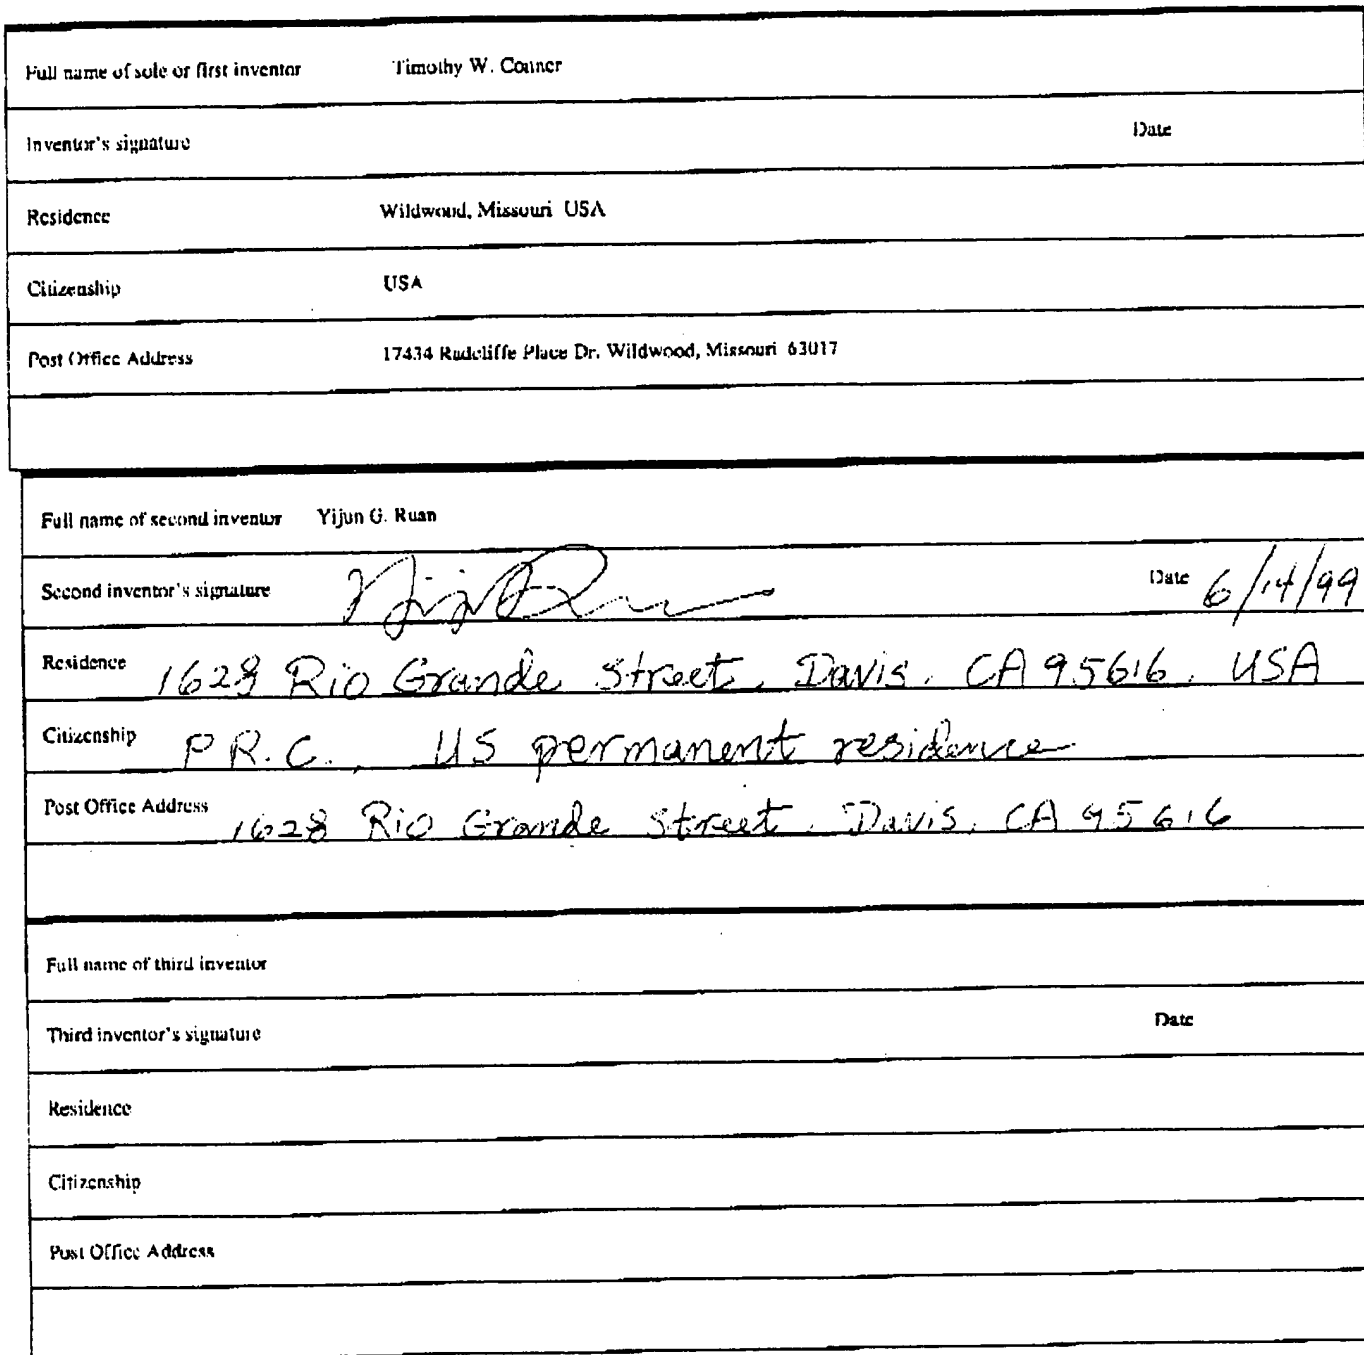 Full name of sole or first inventor Timothy W. Conner
Inventor's signature Date
Residence Wildwood, Missouri USA
Citizenship USA
Post Office Address 17434 Radcliffe Place Dr. Wildwood, Missouri 63017
Full name of second inventor Yijun G. Ruan
Second inventor's signature Date 6/14/99
Residence 1628 Rio Grande Street, Davis, CA 95616, USA
Citizenship P.R.C., US permanent residence
Post Office Address 1628 Rio Grande Street, Davis, CA 95616
Full name of third inventor
Third inventor's signature Date
Residence
Citizenship
Post Office Address